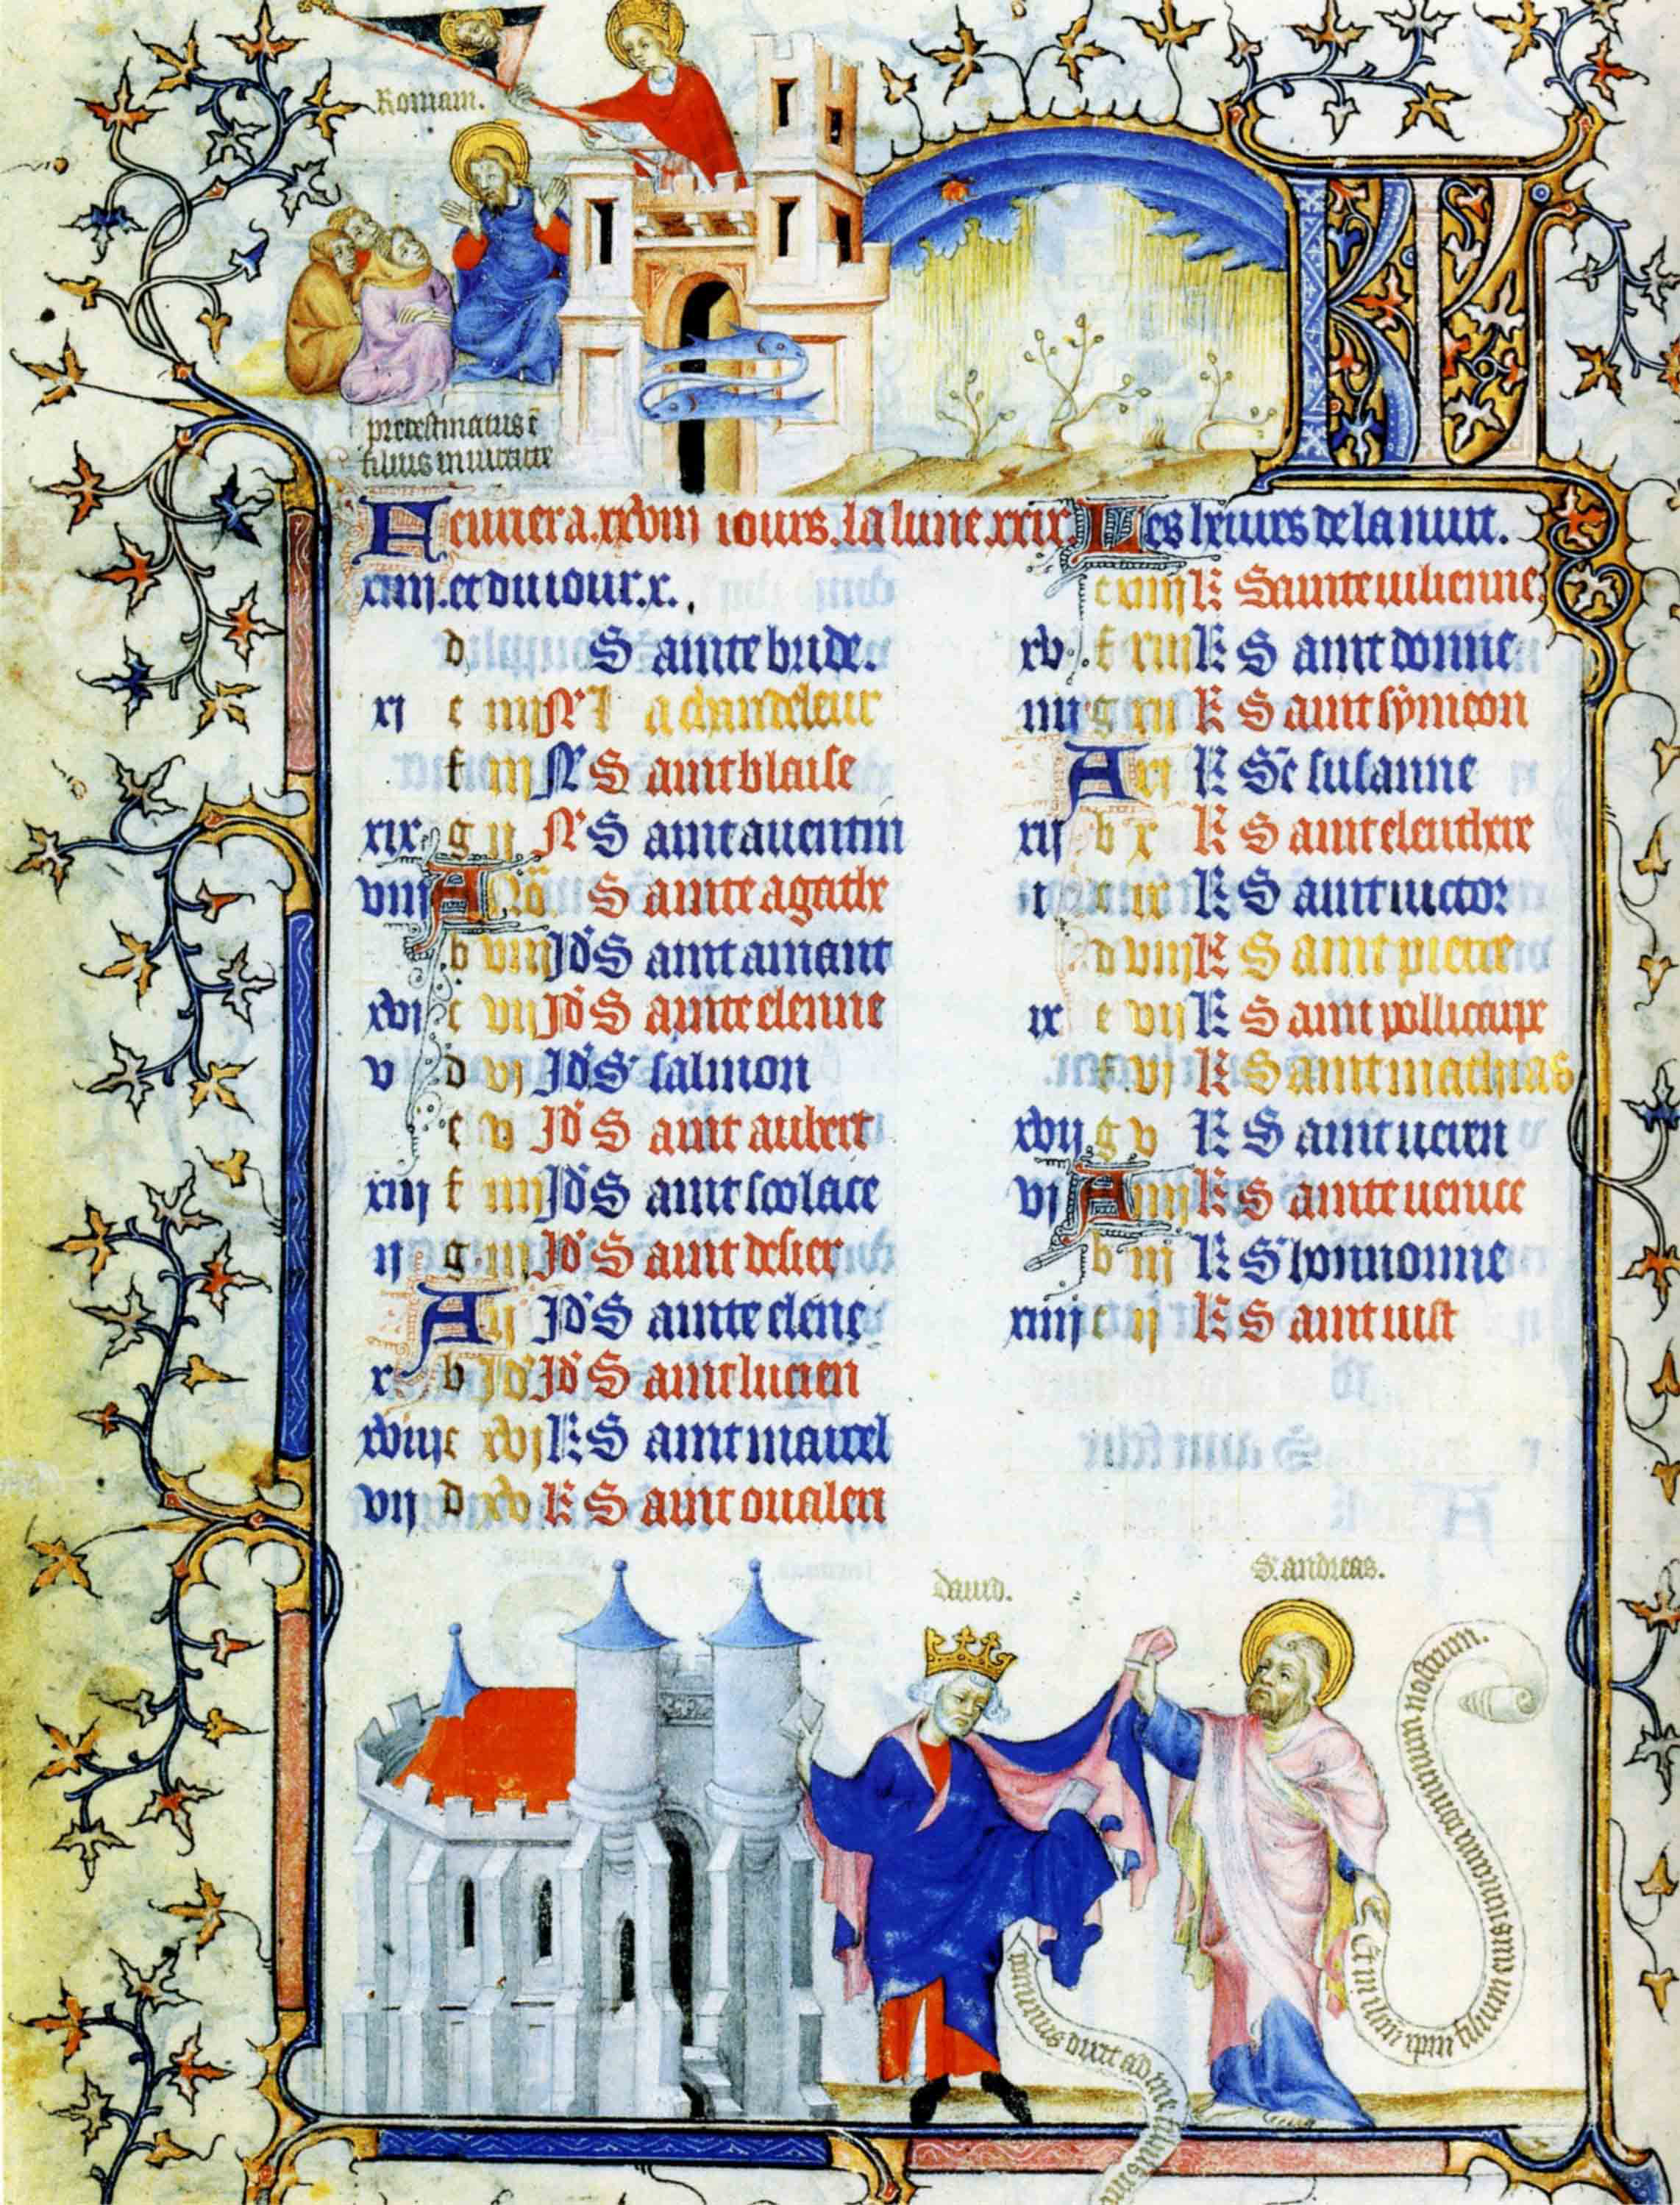 Romam.
predestinatus ē
filius in uirtute
KL
Feurier a .xxviii iours. la lune xxix. Les heures de la nuit.
xiiij. et du iour .x.
d Sainte bride.
xi e iiij N' La chandeleur
f iij N' Saint blaise
xix g ij N' Saint auentin
viij A No Sainte agathe
b viij Id' Saint amant
xvi c vij Id' Sainte elenne
v d vi Id' S' salmon
e v Id' Saint aubert
xiij f iiij Id' Saint scolace
ij g iij Id' Saint desier
A ij Id' Sainte elene
x b Id' Id' Saint lucien
xviij c xvj K Saint marcel
vij d xv K Saint oualen
e xiiij K Sainte iulienne
xv f xiij K Saint donne
iiij g xij K Saint symeon
A xi K Se susanne
xij b x K Saint eleuthere
i c ix K Saint uictor
d viij K Saint pierre
ix e vij K Saint pollicarpe
f vj K Saint mathias
xvij g v K Saint ucien
vi A iiij K Sainte uenice
b iij K S' honnorine
xiiij c ij K Saint iust
dauid.
S. andreas.
dominus dixit ad me filius
Et in ihm xpm filium eius unicum dominum nostrum.